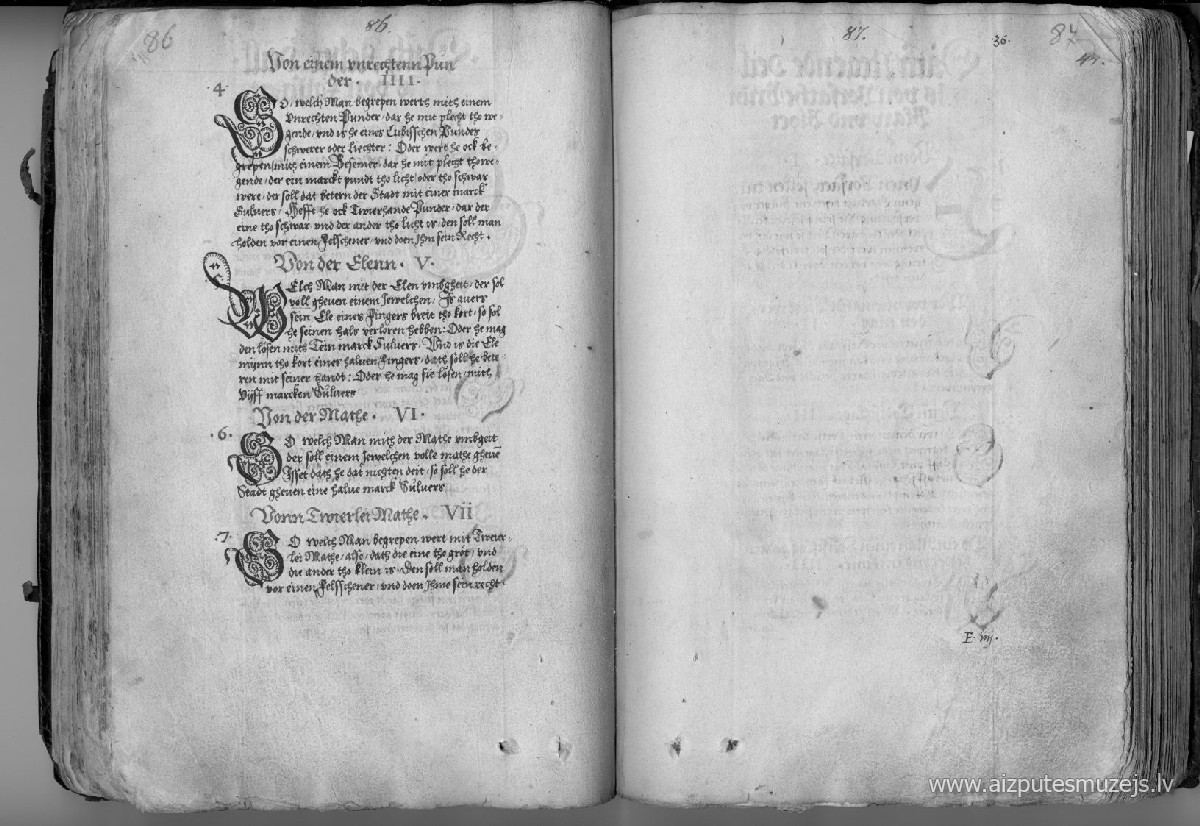 86
86.
Von einem vnrechtenn Pun
der. IIII.
4.
SO welch Man begrepen werth mith einem
vnrechten Punder, dar he mit plecht tho we-
gende, vnd is he eines Lubisschen Punder
schwerer oder liechter: Oder wert he ock be-
grepen mith einem Besemer, dar he mit plecht tho we-
gende, der ein marckt pundt tho licht, oder tho schwar
were, der soll dat betern der Stadt mit einer marck
Suluers, Hefft he ock Twierhande Punder, dar der
eine tho schwar vnd der ander tho licht is, den soll man
holden vor einen Felschener, vnd doen Jhm sein Recht.
Von der Elenn. V.
WElch Man mit der Elen vmbgheit, der sol
voll gheven einem Jewelchen, Is auers
sein Ele eines Fingers breit tho kort, so sol
he seinen hals verloren hebben: Oder he mag
den losen mith Tein marck Suluers, Vnd is die Ele
mynn tho kort einer haluen Fingers, dath soll he bete-
ren mit seiner handt: Oder he mag sie losen, mith
Vyff marcken Suluers
Von der Mathe. VI.
.6.
SO welch Man mith der Mathe vmbgeit
der soll einem Jewelchen volle mathe gheuē
Isset dath he dat nichten deit, so soll he der
Stadt gheuen eine halue marck Suluers
Vonn Twierlei Mathe. VII
.7.
SO welch Man begrepen wert mit Tweier-
lei Mathe, also, dath die eine tho grot, vnd
die ander tho klein is, Den soll man holden
vor einen Felsschener, vnd doen Jhme sein recht.
87.
36.
87
E. iiij.
www.aizputesmuzejs.lv